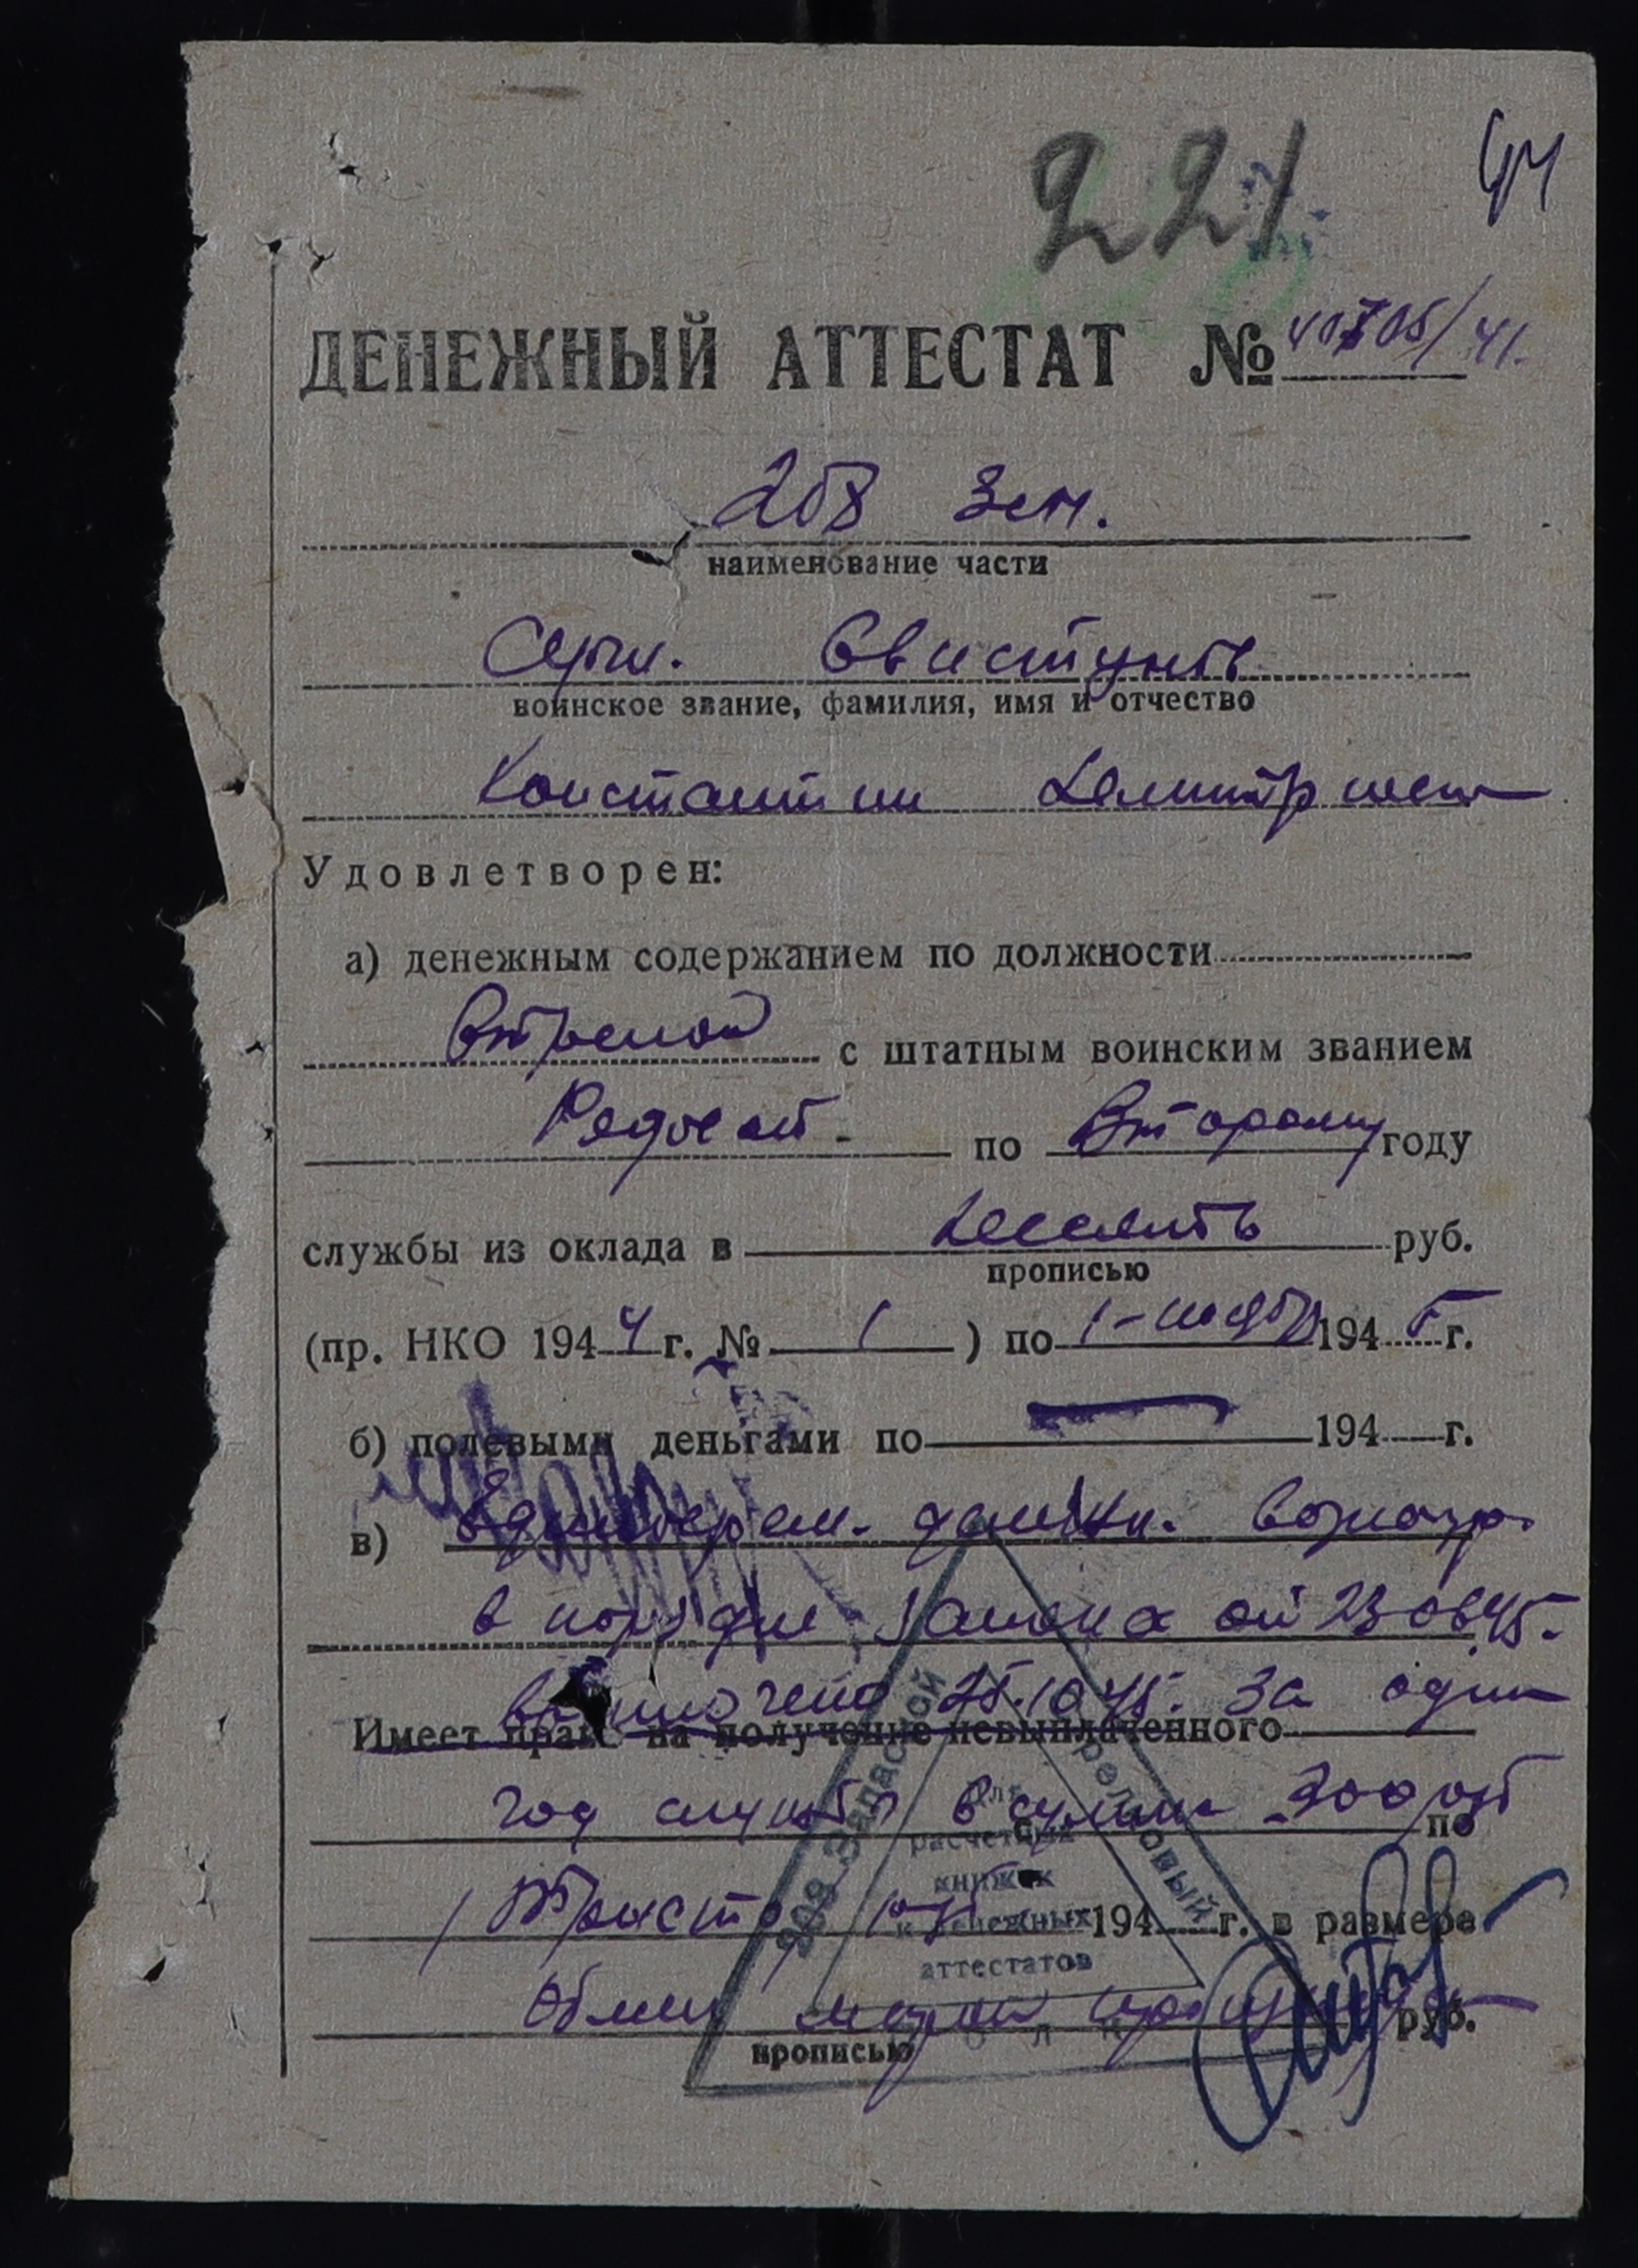 221
ДЕНЕЖНЫЙ АТТЕСТАТ № 40705/41.
208 Зсп.
наименование части
Серж. Свистунов
воинское звание, фамилия, имя и отчество
Константин
Удовлетворен:
а) денежным содержанием по должности
с штатным воинским званием
Рядовой по Второму году
службы из оклада в руб.
прописью
(пр. НКО 1944 г. № 1 ) по 1-ноября 1945 г.
б) полевыми деньгами по — 194 г.
в) Единоврем. денежн. вознагр.
в порядке закона от 23 06 45.
выплачено 25.10.45. За один
Имеет право на получение невыплаченного
год службы в сумме 300 руб
по
194 г. в размере
руб.
прописью
208 Запасной Стрелковый полк
Для
расчетных
книжек
и денежных
аттестатов